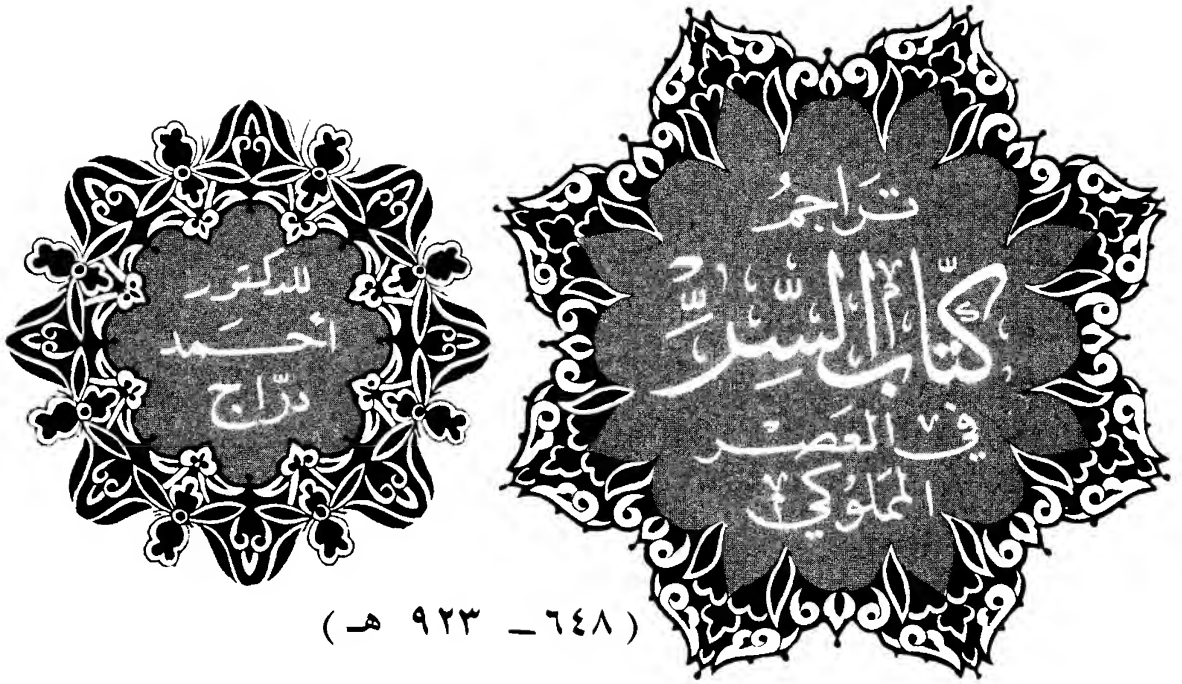 تَرَاجِمُ
كُتَّابِ السِّرِّ
في العَصْر
المَمْلُوكي
للدكتور
أحَمد
درّاج
(٦٤٨ – ٩٢٣ هـ)